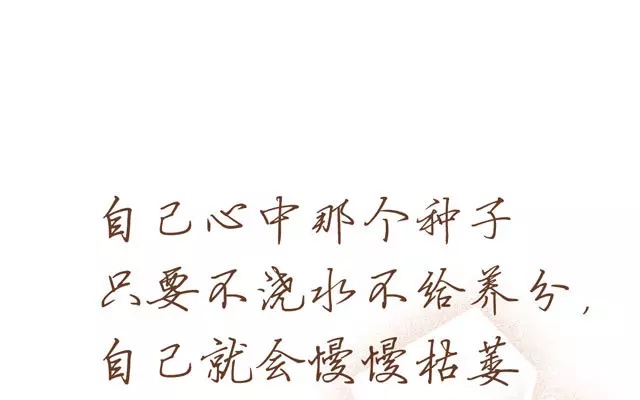 自己心中那个种子
只要不浇水不给养分,
自己就会慢慢枯萎